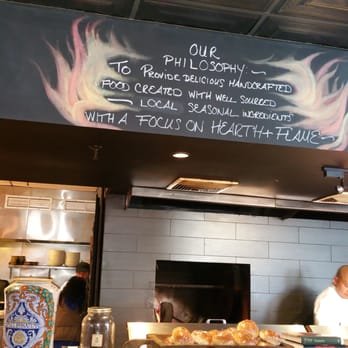 OUR
PHILOSOPHY:~
TO PROVIDE DELICIOUS HANDCRAFTED
FOOD CREATED WITH WELL SOURCED
~ LOCAL SEASONAL INGREDIENTS
WITH A FOCUS ON HEARTH + FLAME~